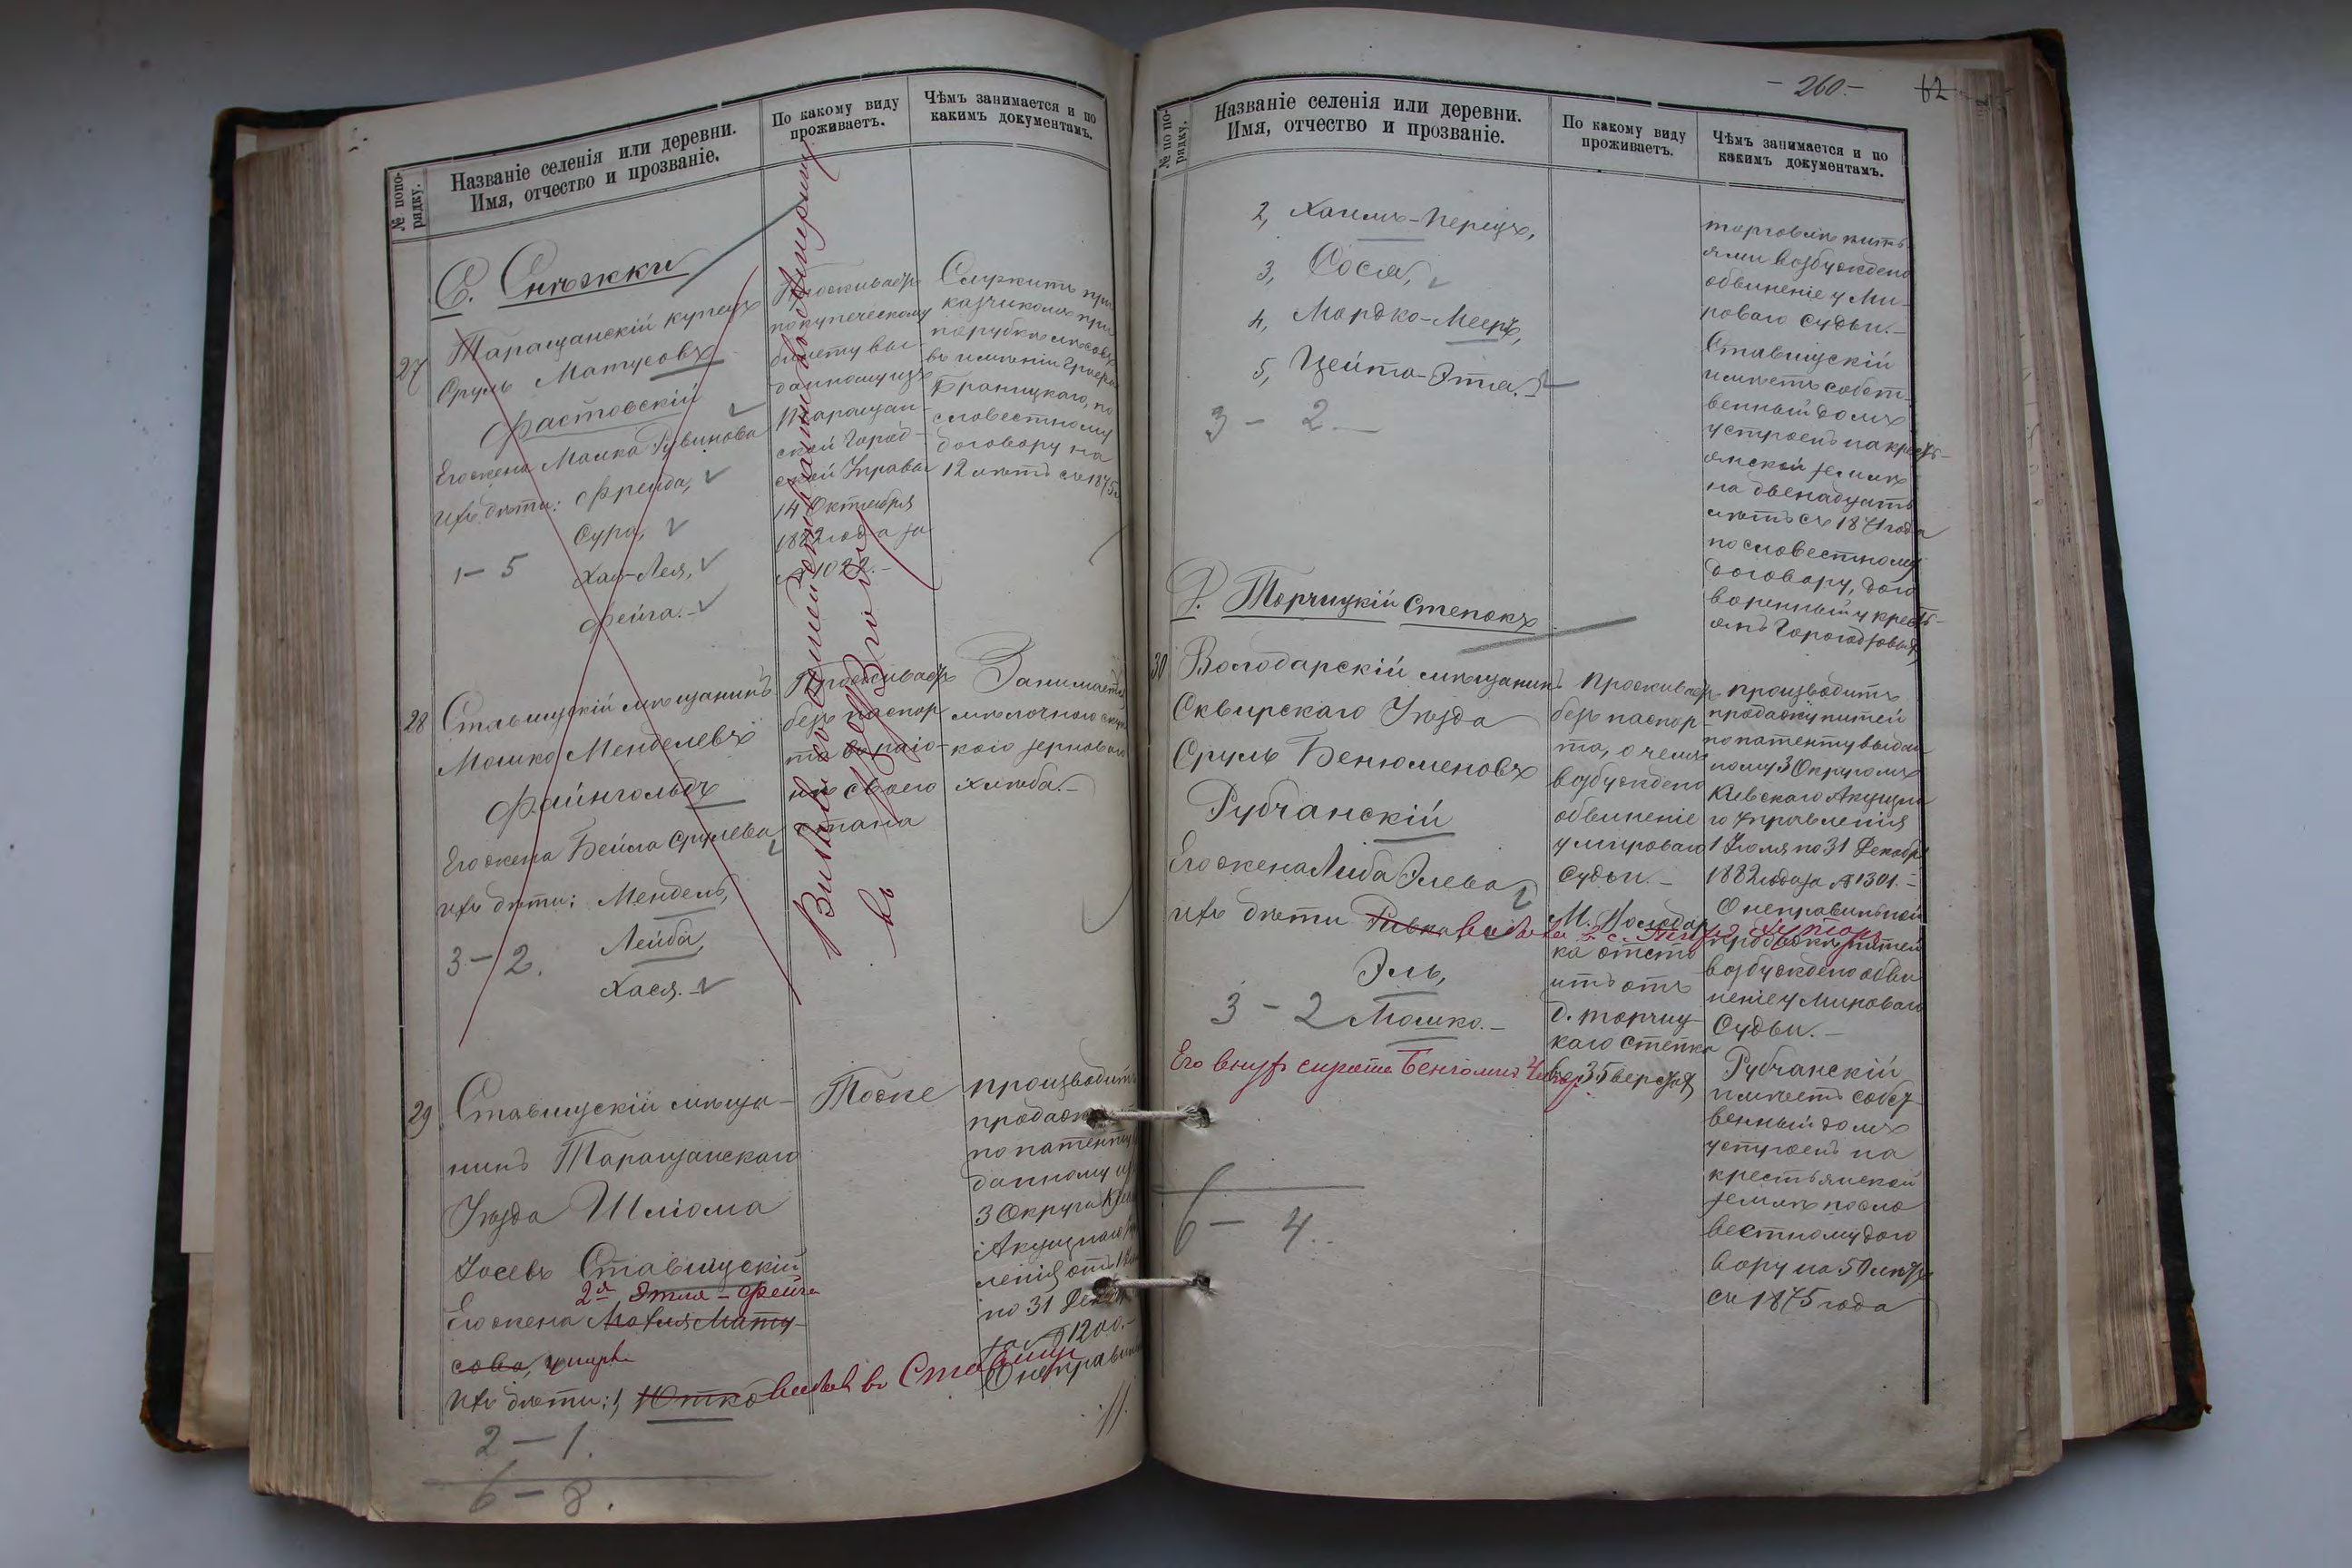 № по по-
рядку.
Названіе селенія или деревни.
Имя, отчество и прозваніе.
По какому виду
проживаетъ.
Чѣмъ занимается и по
какимъ документамъ.
С. Снѣжки
27
Таращанскій купецъ
Сруль Матусовъ
Фастовскій
Его жена Малка Рувинова
Ихъ дѣти: Фрейда,
Сура,
Хая-Лея,
Фейга.-
1 - 5
Проживаетъ
по купеческому
билету вы-
данному изъ
Таращан-
ской Город-
ской Управы
14 Октября
1882 года за
№ 1022.-
Служитъ при
казчикомъ при
порубкѣ лѣсовъ
въ имѣніи Графа
Браницкаго, по
словестному
договору на
12 лѣтъ съ 1875
28
Ставищскій мѣщанинъ
Мошко Менделевъ
Файнгольдъ
Его жена Бейла Срулева
Ихъ дѣти: Мендель,
Лейба,
Хася.-
3 - 2.
Проживаетъ
безъ паспор
та въ раіо-
нѣ своего
стана
Занимается
мѣлочного скуп
кою зерноваго
хлѣба.-
29
Ставищскій мѣща-
нинъ Таращанскаго
Уѣзда Шлiома
Іосевъ Ставищскій
2я Этля - Фейга
Его жена Матля Мату-
сова, умерла
Ихъ дѣти: 1, Ютко выбылъ въ Ставищи
2 - 1.
6 - 8.
Тоже
производитъ
продажу
по патенту
данному изъ
3 Округа Кіев
Акцизнаго
ленія отъ 1
по 31 Декабр
за № 1200.-
О неправиль
- 260 -
62
№ по по-
рядку.
Названіе селенія или деревни.
Имя, отчество и прозваніе.
По какому виду
проживаетъ.
Чѣмъ занимается и по
какимъ документамъ.
2, Хаимъ-Перецъ,
3, Сося,
4, Мордко-Мееръ,
5, Цейта-Эта.-
3 - 2
торговлѣ пить-
ями возбуждено
обвиненіе у Ми-
роваго Судьи.-
Ставищскій
имѣетъ собст-
венный домъ
устроенъ на кресть-
янской землѣ
на двенадцать
лѣтъ съ 1871 года
по словестному
договору, дого
воренный у кресть-
янъ
Д. Торчицкій Степокъ
30
Володарскій мѣщанинъ
Сквирскаго Уѣзда
Сруль Бенюменовъ
Рубчанскій
Его жена Либа Элева
Ихъ дѣти Ривка
Эль,
Мошко.-
3 - 2
Его внукъ сирота Бенюминъ
6 - 4.
Проживаетъ
безъ паспор
та, о чемъ
возбуждено
обвиненіе
у мироваго
Судьи.-
М. Володар
ка отсто
итъ отъ
д. Торчиц-
каго степка
въ 35 верстахъ
производитъ
продажу питей
по патенту выдан
ному 3 Округомъ
Кіевскаго Акцизна
го Управленія
1 Іюля по 31 Декабр
1882 года за № 1301.-
О неправильной
продажѣ питей
возбуждено обви
неніе у Мироваго
Судьи.-
Рубчанскій
имѣетъ собст
венный домъ
устроенъ на
крестьянской
землѣ по сло
вестному дого
вору на 50 лѣтъ
съ 1875 года